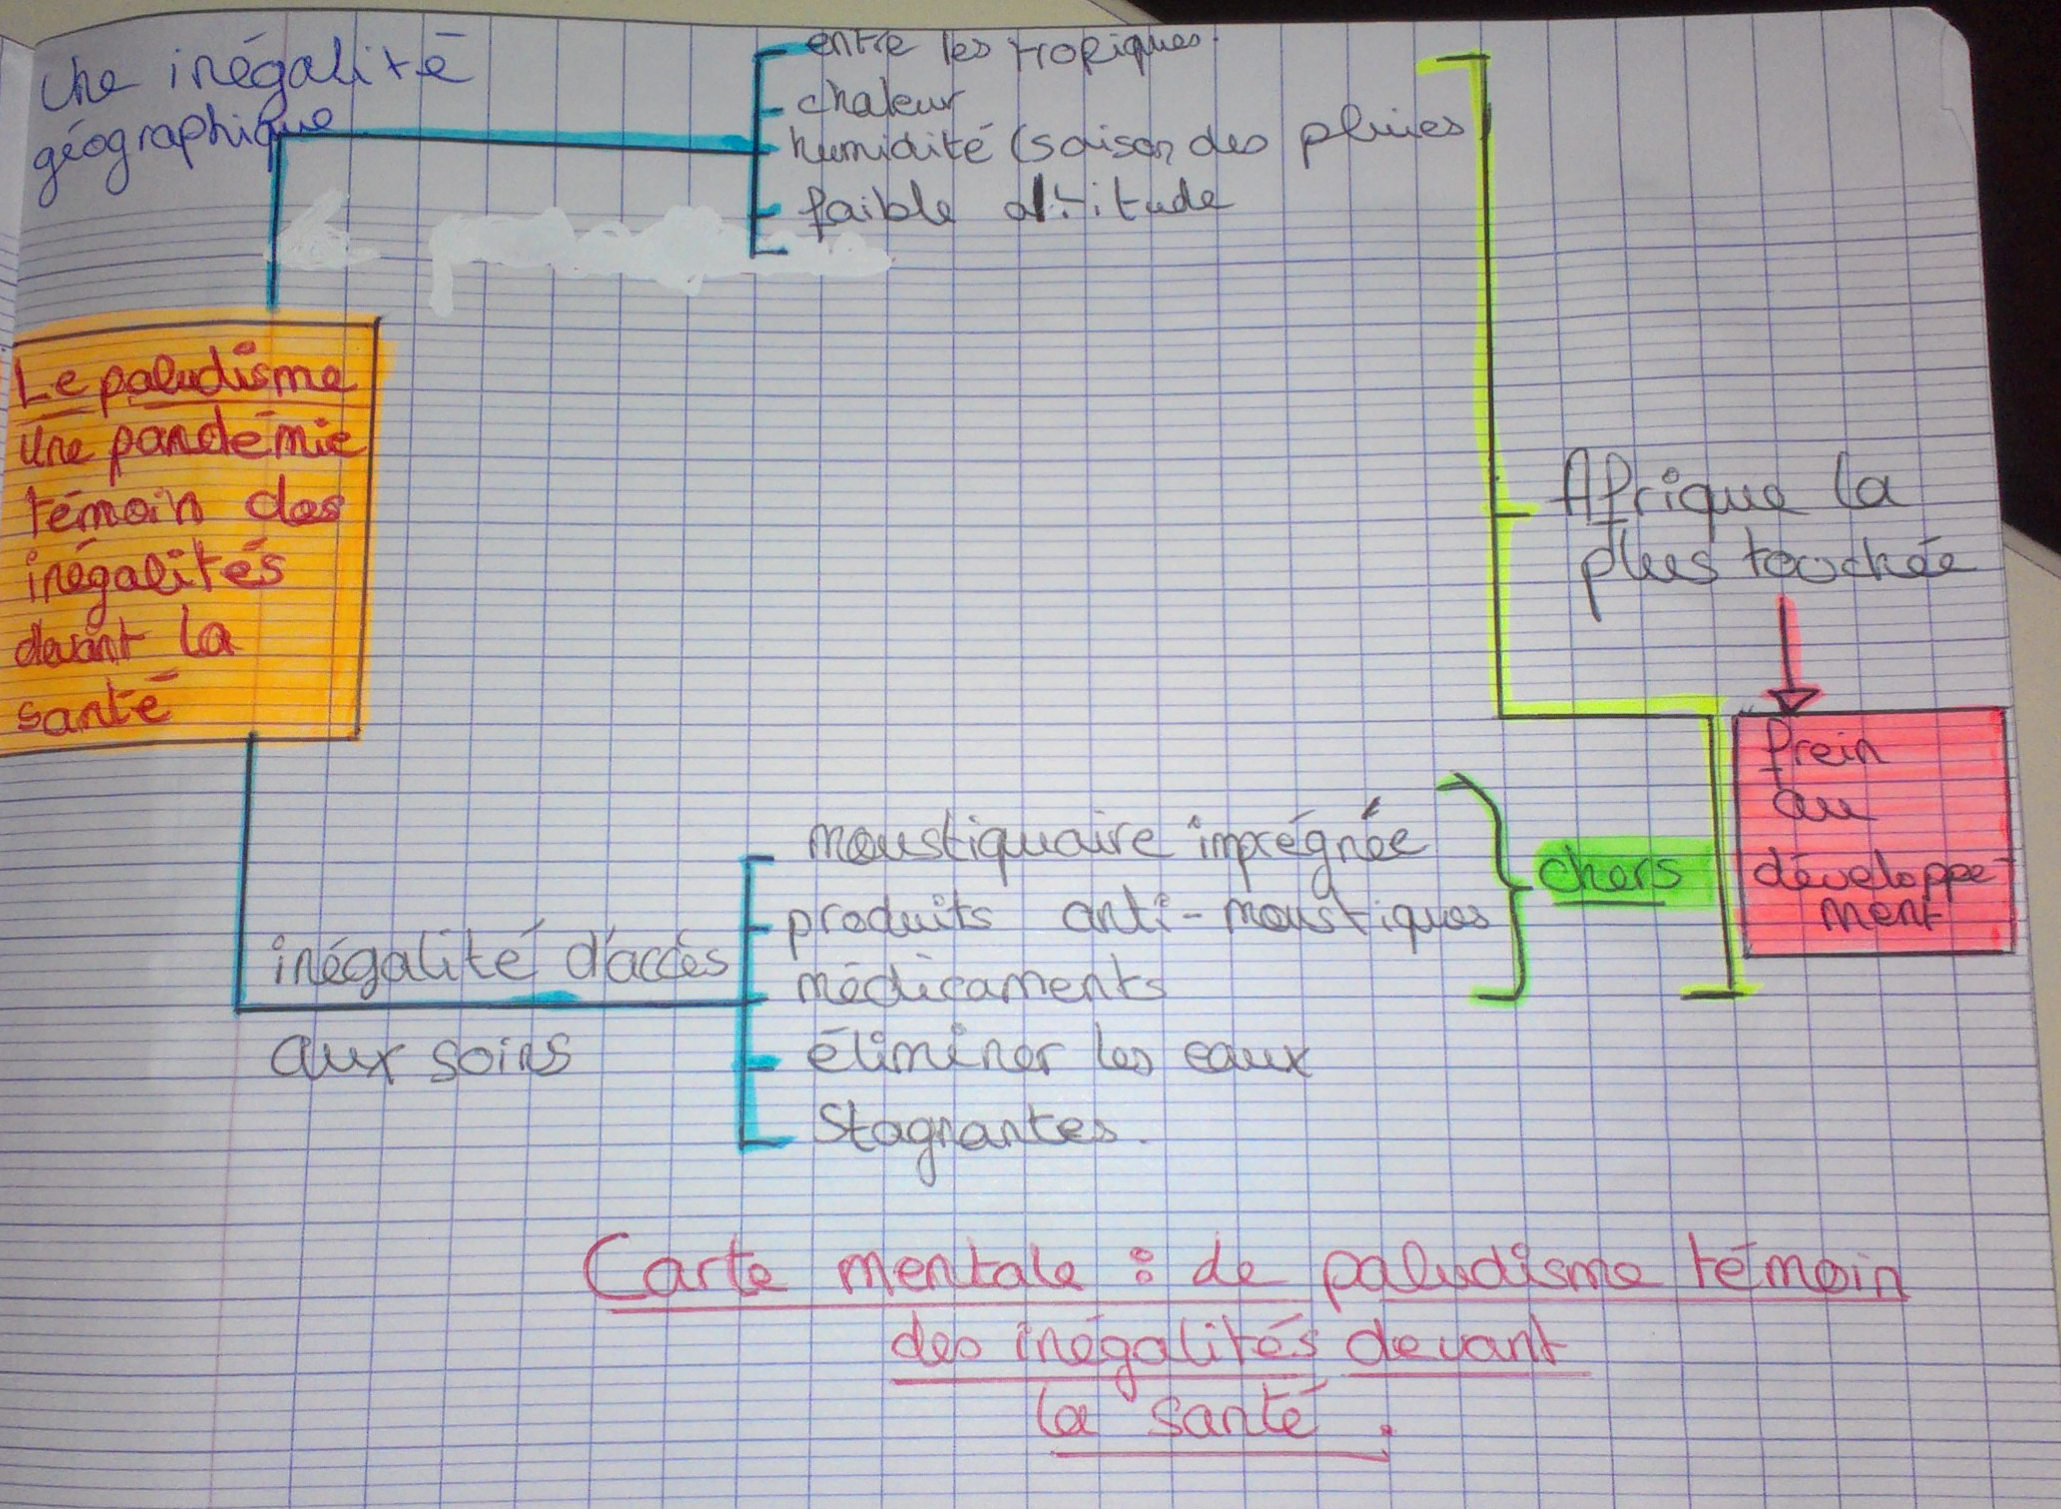 Une inégalité
géographique
entre les tropiques.
chaleur
humidité (saison des pluies
faible altitude
Le paludisme
une pandémie
témoin des
inégalités
devant la
santé
Afrique la
plus touchée
frein
au
développe-
ment
inégalité d'accès
aux soins
moustiquaire imprégnée
produits anti-moustiques
médicaments
éliminer les eaux
stagnantes.
chers
Carte mentale : de paludisme témoin
des inégalités devant
la santé.